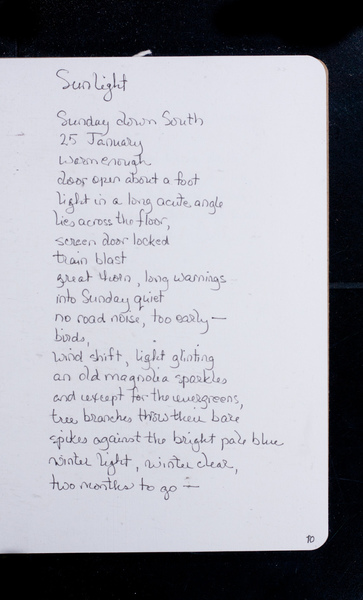 Sunlight
Sunday down South
25 January
warm enough
door open about a foot
light in a long acute angle
lies across the floor,
screen door locked
train blast
great horn, long warnings
into Sunday quiet
no road noise, too early—
birds,
wind shift, light glinting
an old magnolia sparkles
and except for the evergreens,
tree branches throw their bare
spikes against the bright pale blue
winter light, winter clear,
two months to go —
10